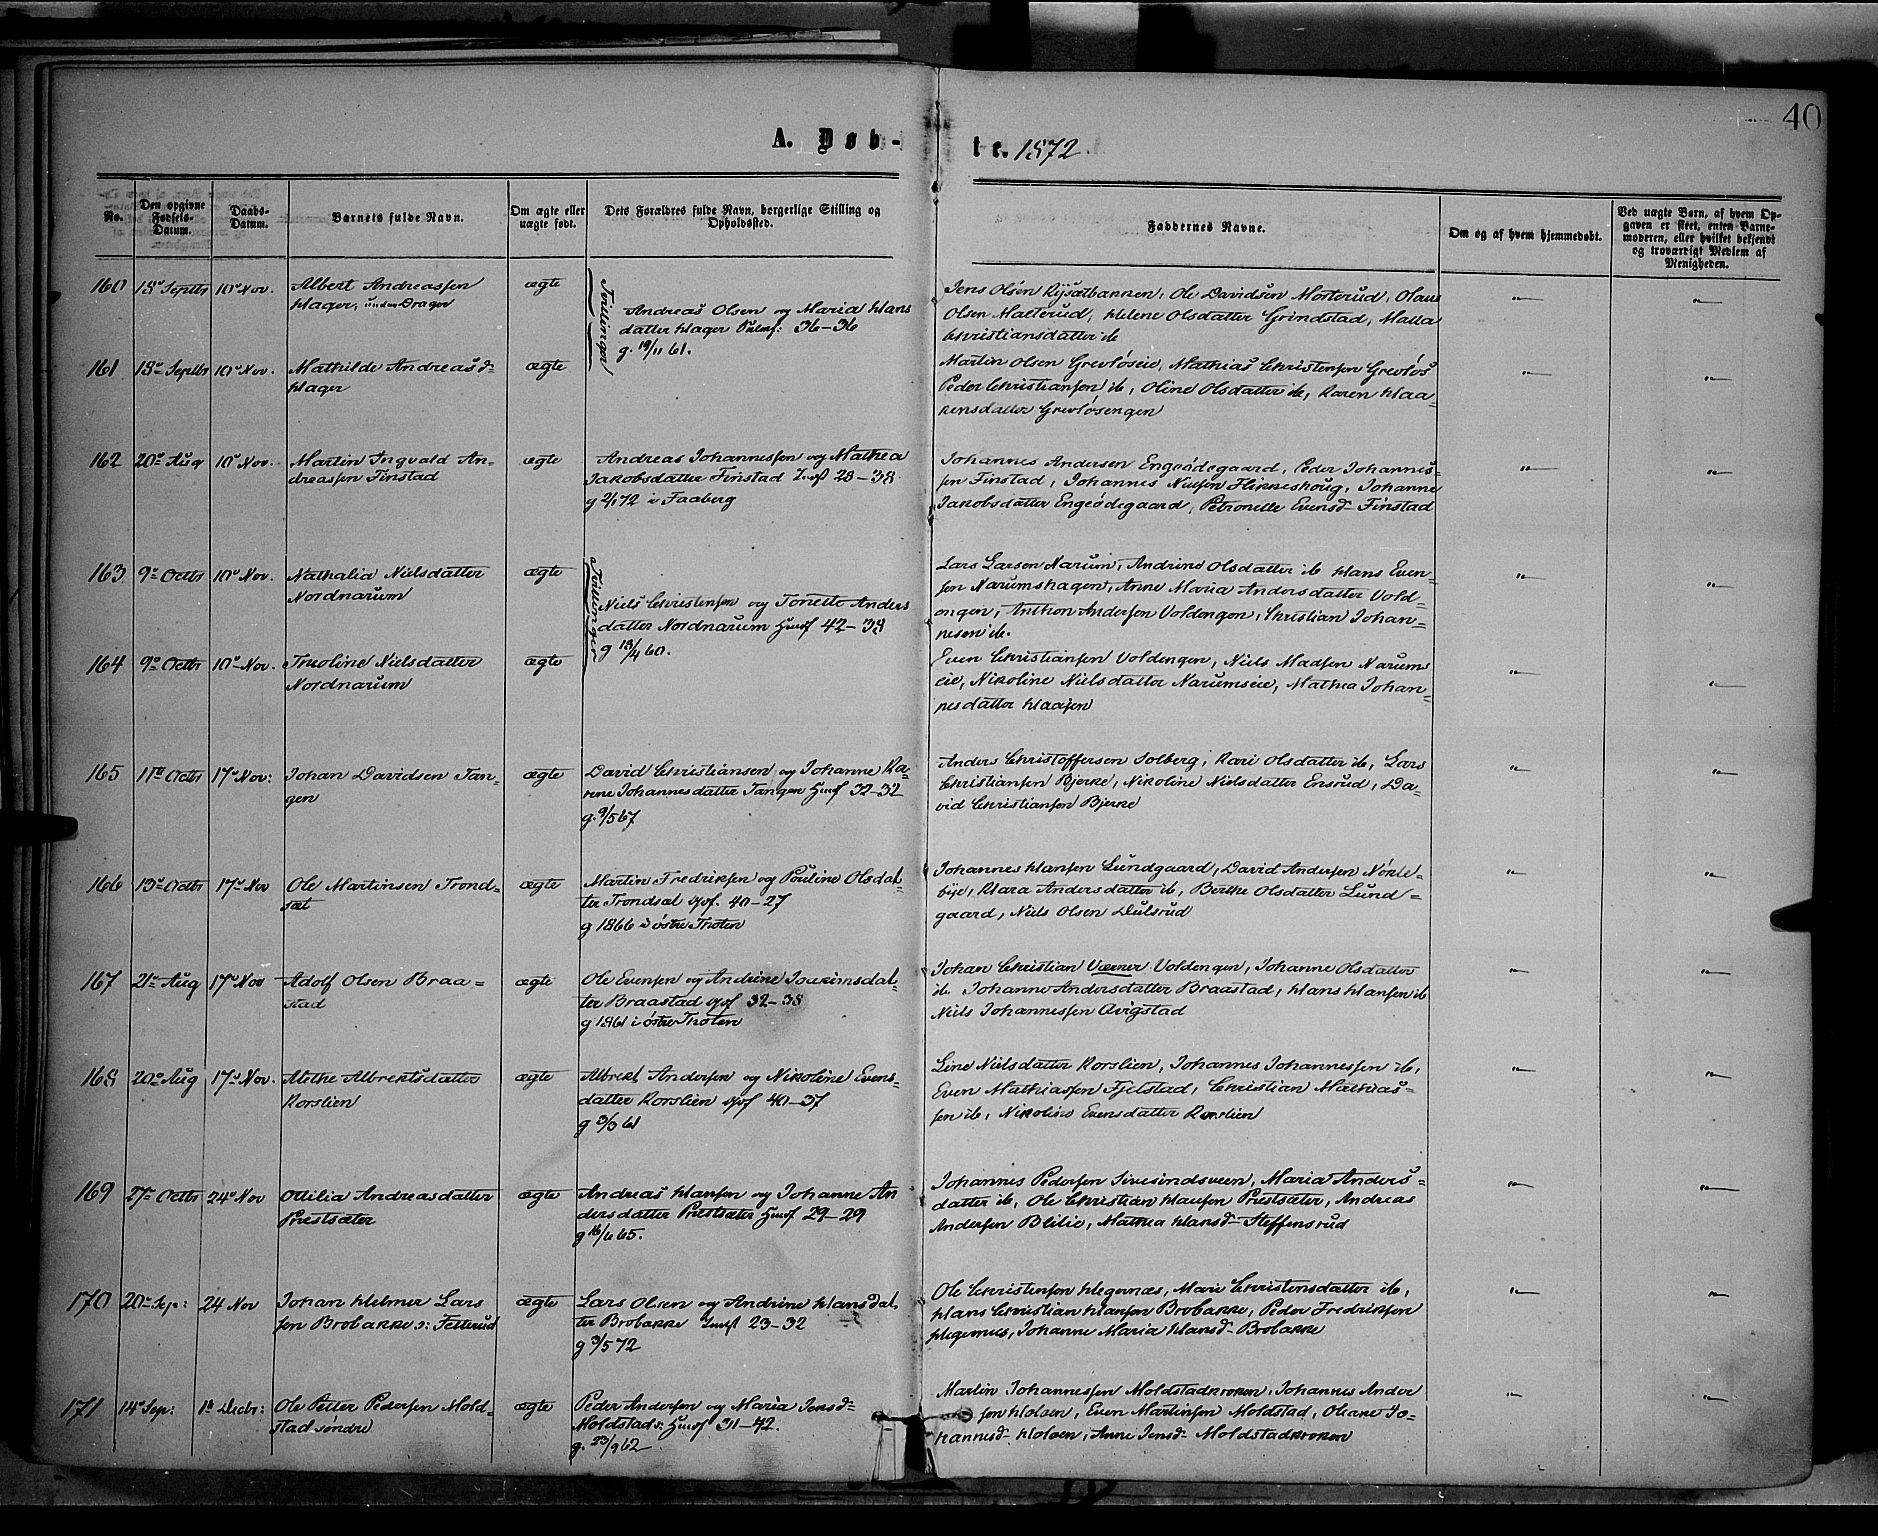 40
A. Døb-
te. 1872
No.
Den opgivne Fødsels-Datum.
Daabs-Datum.
Barnets fulde Navn.
Om ægte eller uægte født.
Dets Forældres fulde Navn, borgerlige Stilling og Opholdssted.
Faddernes Navne.
Om og af hvem hjemmedøbt.
Ved uægte Børn, af hvem Opgaven er skeet, enten Barnemoderen, eller hvilket bekjendt og troværdigt Medlem af Menigheden.
160 18de Septbr 10de Nov. Albert Andreassen
Hager, under Drager
ægte
Tvillinger
Andreas Olsen og Maria Hans
datter Hager 36–36
g. 19/11 61.
Jens Olsen Rysætbakken, Ole Davidsen Mosterud, Olaus
Olsen Malterud, Helene Olsdatter Grindstad, Malla
Christiansdatter ib
161 18de Septbr 10de Nov. Mathilde Andreasd-
Hager
ægte
Martin Olsen Grevløseie, Mathias Christensen Grevløs
Peder Christiansen ib, Oline Olsdatter ib, Karen Haa-
kensdatter Grevløsengen
162 20de Aug 10de Nov. Martin Ingvald An-
dreassen Finstad
ægte
Andreas Johannessen og Mathea
Jakobsdatter Finstad Inst 28–38
g 2/1 72 i Faaberg
Johannes Andersen Engeødegaard, Peder Johannes-
sen Finstad, Johannes Nilsen Flikkeshoug, Johanne
Jakobsdatter Engeødegaard, Petronelle Evensd- Finstad
163 9de Octbr 10de Nov. Nathalia Nielsdatter
Nordnarum
ægte
Tvillinger
Niels Christensen og Tonette Anders
datter Nordnarum Husf 42–38
g 18/4 60.
Lars Larsen Narum, Andrine Olsdatter ib Hans Even-
sen Narumshagen, Anne Maria Andersdatter Vold-
engen, Anthon Andersen Voldengen, Christian Johan-
nesen ib.
164 9de Octbr 10de Nov. Trueline Nielsdatter
Nordnarum
ægte
Even Christiansen Voldengen, Niels Madsen Narums
eie, Nikoline Nielsdatter Narumseie, Mathea Johan-
nesdatter Haajen
165 11te Octbr 17de Nov: Johan Davidsen Tan-
gen
ægte
David Christiansen og Johanne Ka-
rine Johannesdatter Tangen Husf 32–32
g. 9/5 67
Anders Christoffersen Solberg, Kari Olsdatter ib, Lars
Christiansen Bjerke, Nikoline Nielsdatter Ensrud, Da-
vid Christiansen Bjerke
166 13de Octbr 17de Nov Ole Martinsen Trond-
sæt
ægte
Martin Fredriksen og Pouline Olsdat-
ter Trondsæt 40–27
g 1866 i østre Thoten
Johannes Hansen Lundgaard, David Andersen Nørde-
bye, Klara Andersdatter ib, Berthe Olsdatter Lund-
gaard, Niels Olsen Dulsrud
167 21de Aug 17de Nov Adolf Olsen Braa-
stad
ægte
Ole Evensen og Andrine Joakimsdat-
ter Braastad 32–38
g 1861 i østre Thoten
Johan ChristianVærner Voldengen, Johanne Olsdatter
ib. Johanne Andersdatter Braastad, Hans Hansen ib
Niels Johannessen Qvigstad
168 20de Aug 17de Nov. Methe Albrektsdatter
Korslien
ægte
Albrekt Andersen og Nikoline Evens-
datter Korslien 40–37
g 3/3 61
Line Nielsdatter Korslien, Johannes Johannessen ib,
Even Mathiassen Fjelstad, Christian Mathias-
sen ib, Nikoline Evensdatter Korslien
169 27de Octbr 24de Nov Ottilia Andreasdatter
Præstsæter
ægte
Andreas Hansen og Johanne An
dersdatter Præstsæter Husf 29–29
g 16/6 65.
Johannes Pedersen Sivesindsveen, Maria Anders-
datter ib, Ole Christian Hansen Præstsæter, Andreas
Andersen Blilie, Mathea Hansd- Steffensrud
170 20de Sep: 24 Nov Johan Helmer Lars
sen Brobakke s: Fetterud
ægte
Lars Olsen og Andrine Hansdat-
ter Brobakke Inst 23–32
g 3/5 72
Ole Christensen Hegernæs, Mari Christensdatter ib,
Hans Christian Hansen Brobakke, Peder Fredriksen
Hegernæs, Johanne Maria Hansd- Brobakke
171 14de Sep: 1ste Decbr: Ole Petter Pedersen Mold-
stad søndre
ægte
Peder Andersen og Maria Jensd-
Moldstad s: Husf 31–42.
g. 23/9 62
Martin Johannessen Moldstadkroken, Johannes Ander
sen Holoen, Even Martinsen Moldstad, Oleane Jo-
hannesd- Holoen, Anne Jensd- Moldstadkroken